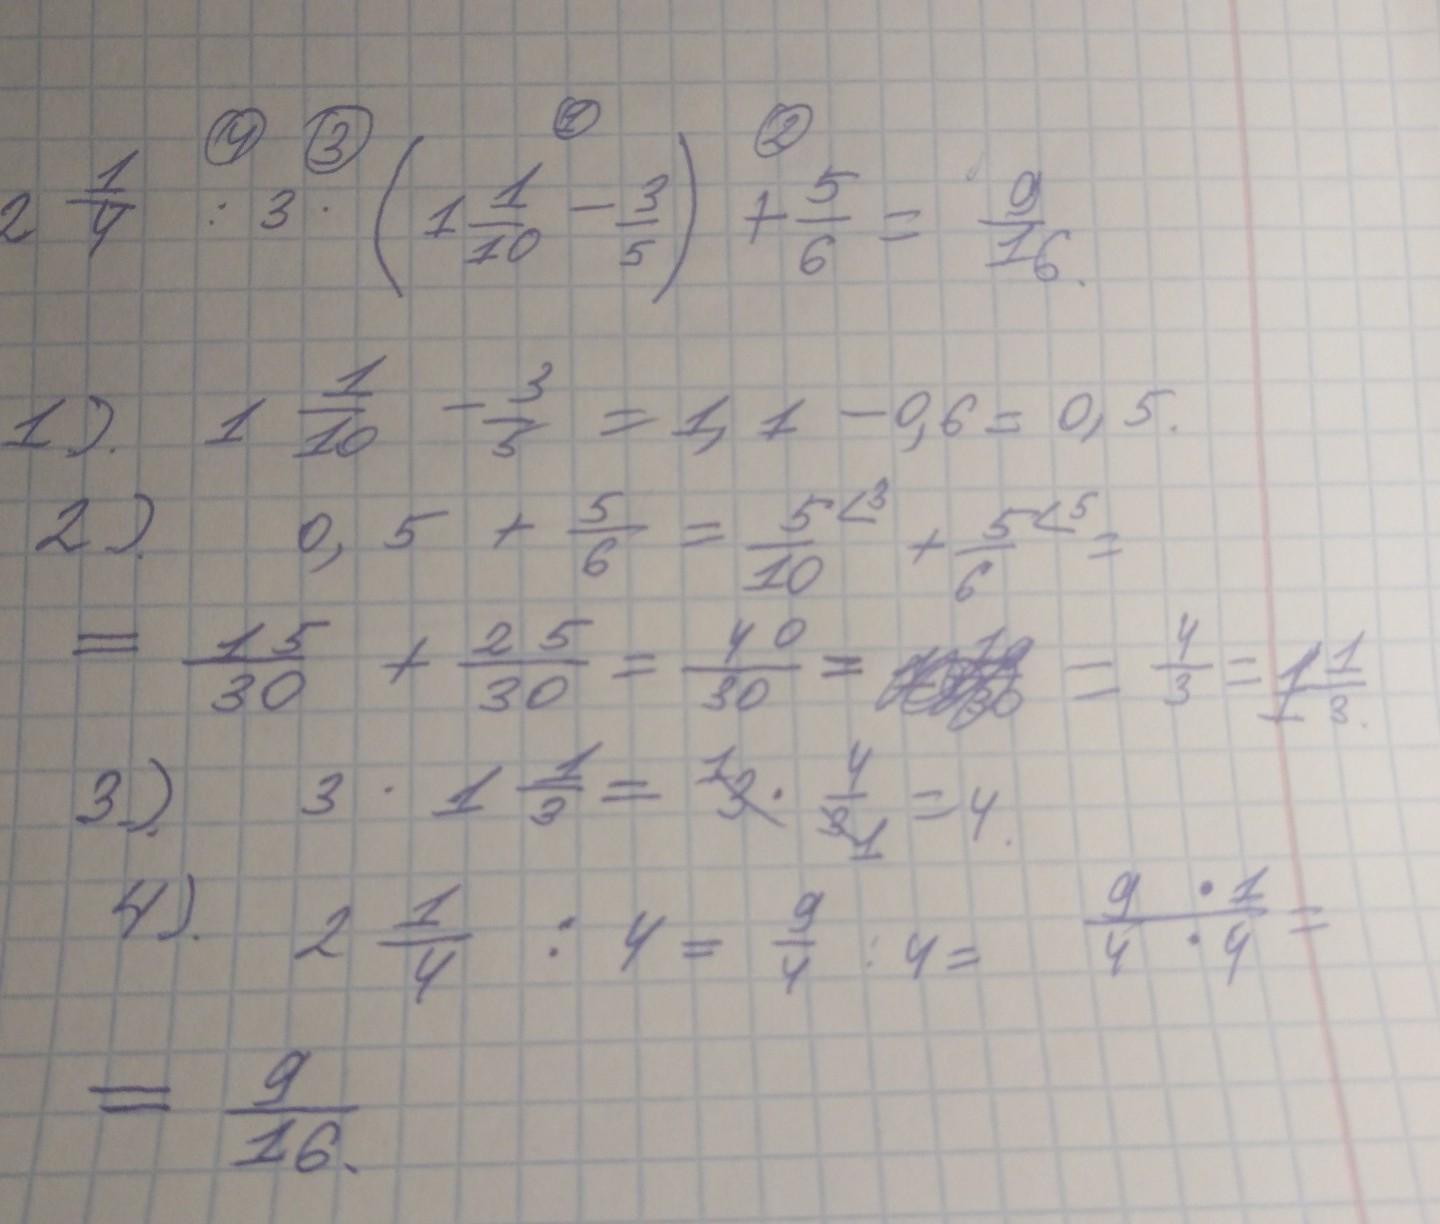 ④ ③ ① ②
2 1/4 : 3 · (1 1/10 - 3/5) + 5/6 = 9/16.
1). 1 1/10 - 3/5 = 1,1 - 0,6 = 0,5.
2). 0,5 + 5/6 = 5<3/10 + 5<5/6 =
= 15/30 + 25/30 = 40/30 = = 4/3 = 1 1/3.
3). 3 · 1 1/3 = 3 1 · 4/3 1 = 4.
4). 2 1/4 : 4 = 9/4 : 4 = 9 · 1/4 · 4 =
= 9/16.